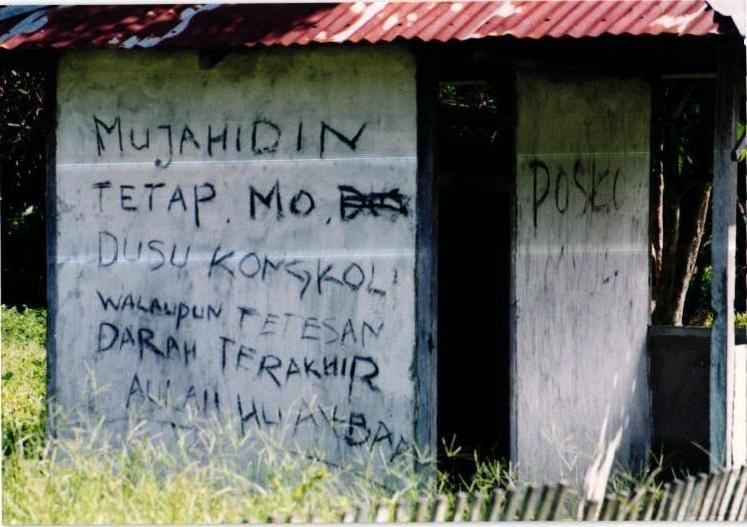 MUJAHIDIN
TETAP. MO.
DUSU KONGKOLI
WALAUPUN TETESAN
DARAH TERAKHIR
AULAH HU AKBAR
POSKO